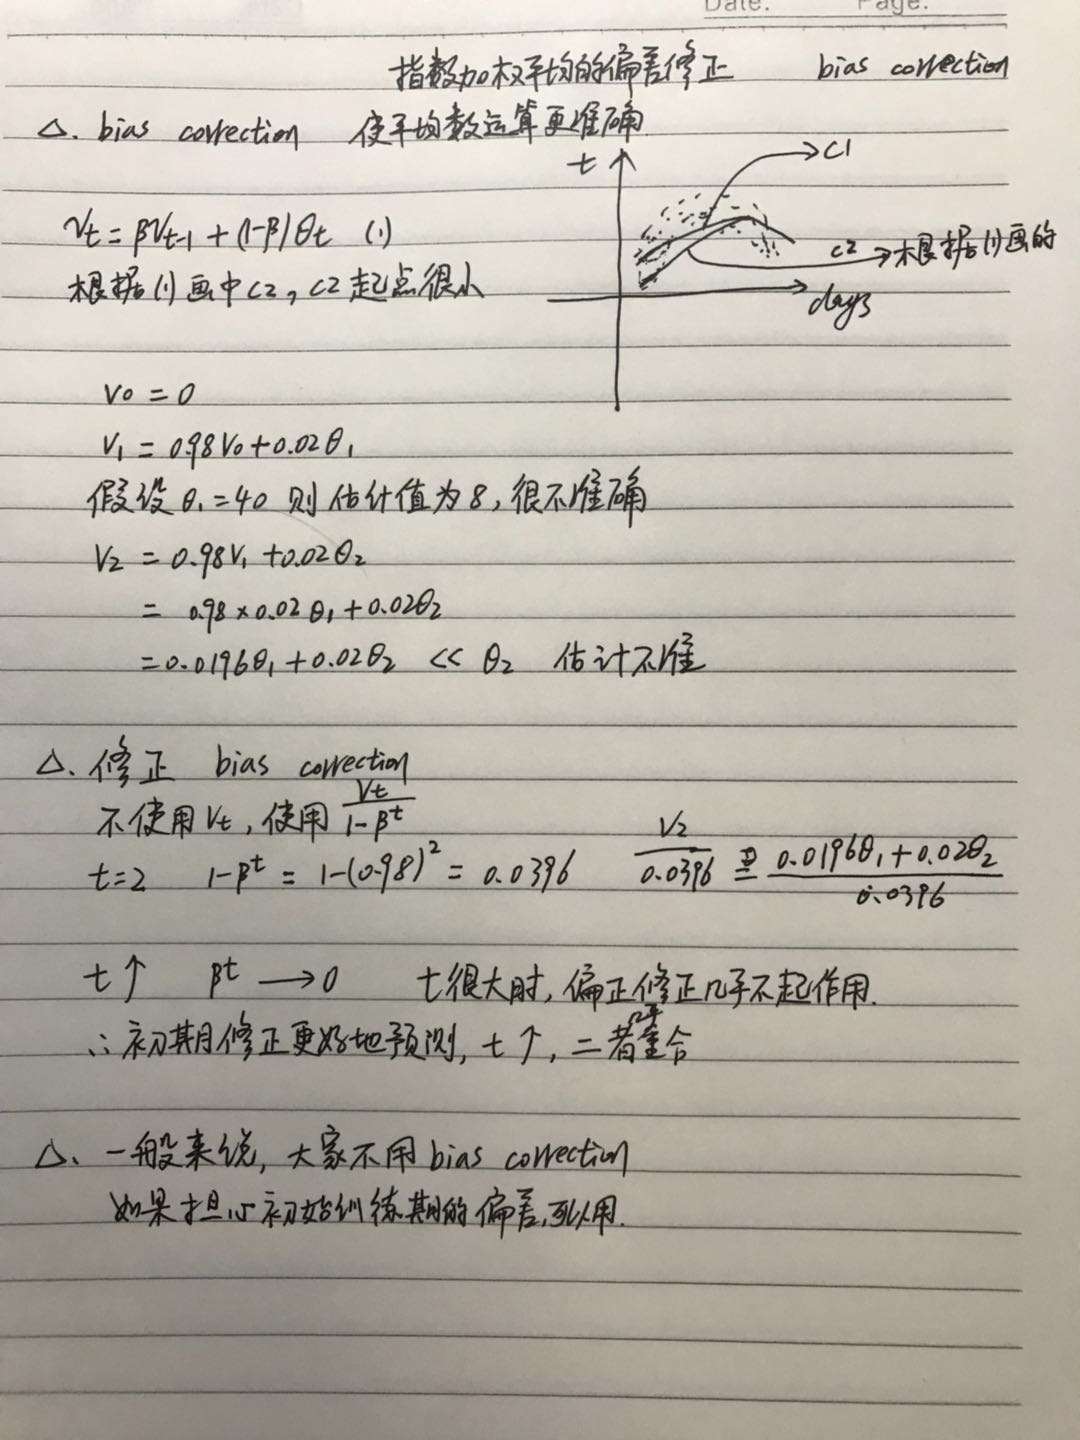 Date: Page:
指数加权平均的偏差修正 bias correction
△. bias correction 使平均数运算更准确
t
c1
Vt = βVt-1 + (1-β)θt (1)
c2 → 根据(1)画的
根据(1)画中c2, c2起点很小
days
V0 = 0
V1 = 0.98V0 + 0.02θ1
假设θ1=40 则估计值为8, 很不准确
V2 = 0.98V1 + 0.02θ2
= 0.98×0.02θ1 + 0.02θ2
= 0.0196θ1 + 0.02θ2 << θ2 估计不准
△. 修正 bias correction
不使用Vt, 使用 Vt/(1-β^t)
t=2 1-β^t = 1-(0.98)^2 = 0.0396 V2/0.0396 = (0.0196θ1 + 0.02θ2)/0.0396
t↑ β^t → 0 t很大时, 偏正修正几乎不起作用.
∴ 初期修正更好地预测, t↑, 二者几乎重合
△、一般来说, 大家不用bias correction
如果担心初始训练期的偏差,可以用.